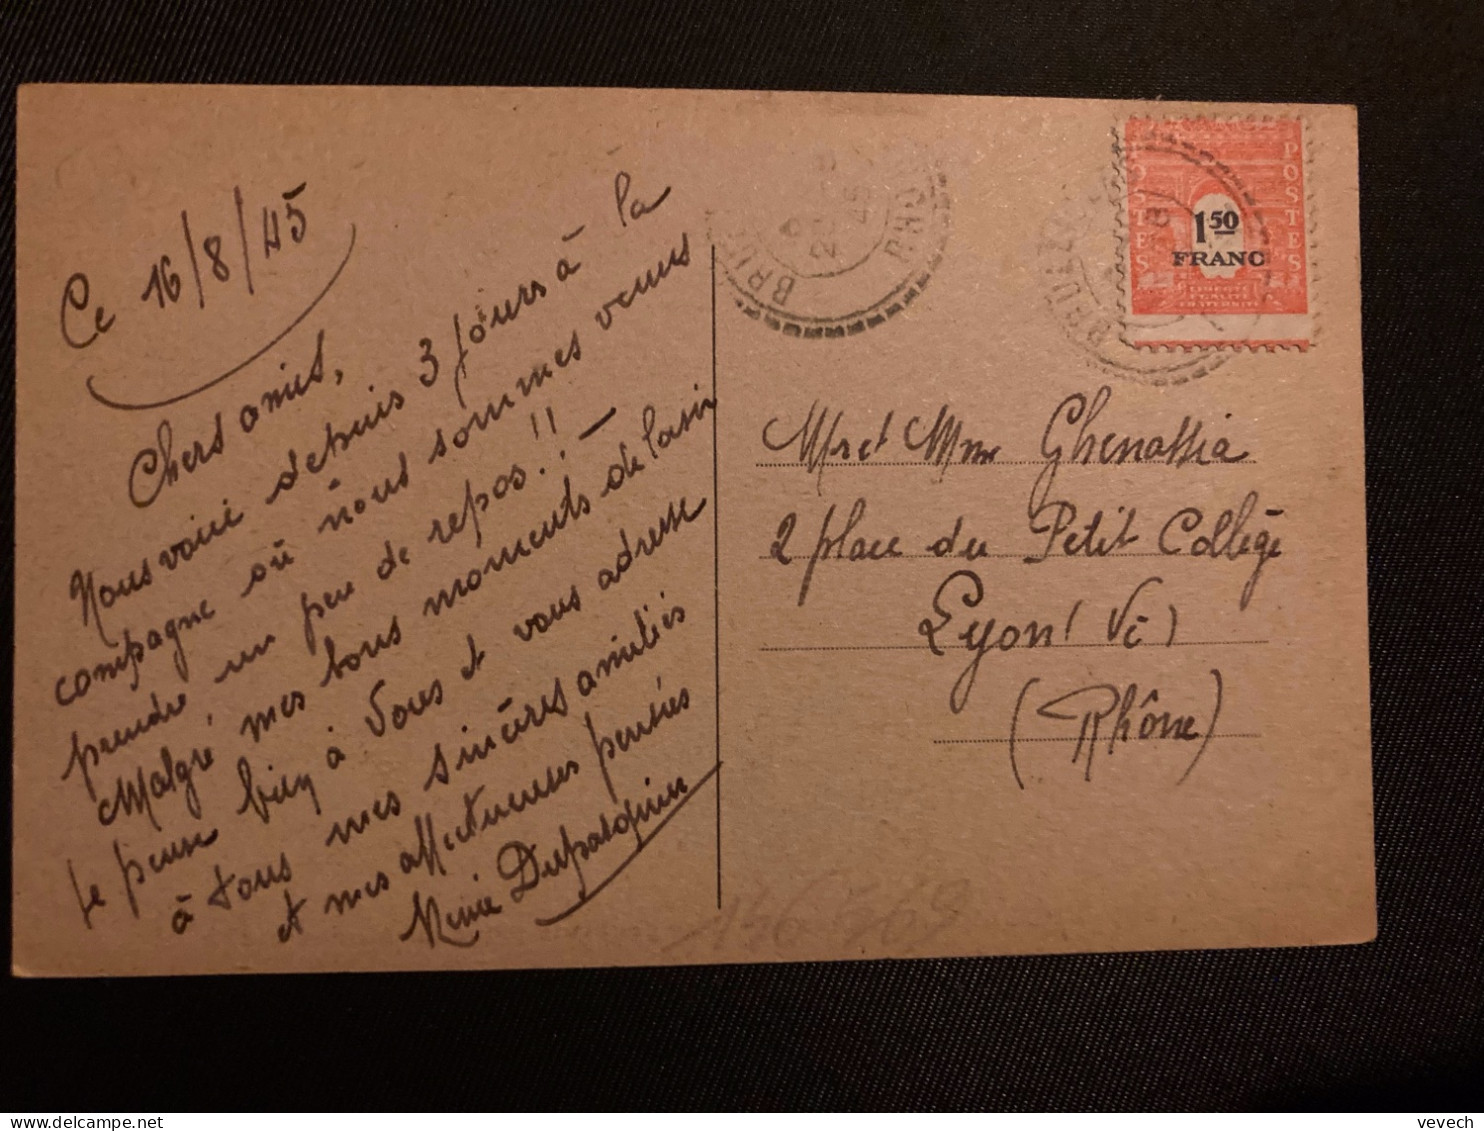 Ce 16/8/45
Chers amis,
Nous voici depuis 3 jours à la
compagne où nous sommes venus
prendre un peu de repos.!! —
Malgré mes bons moments de loisir
je pense bien à vous et vous adresse
à tous mes sincères amitiés
et mes affectueuses pensées
Dupasquier
BRU
RHONE
POSTES
1 50
FRANC
POSTES
LIBERTÉ
EGALITÉ
FRATERNITÉ
Mr et Mme Ghenassia
2 place du Petit Collège
Lyon (Ve)
(Rhône)
146 369
vevech